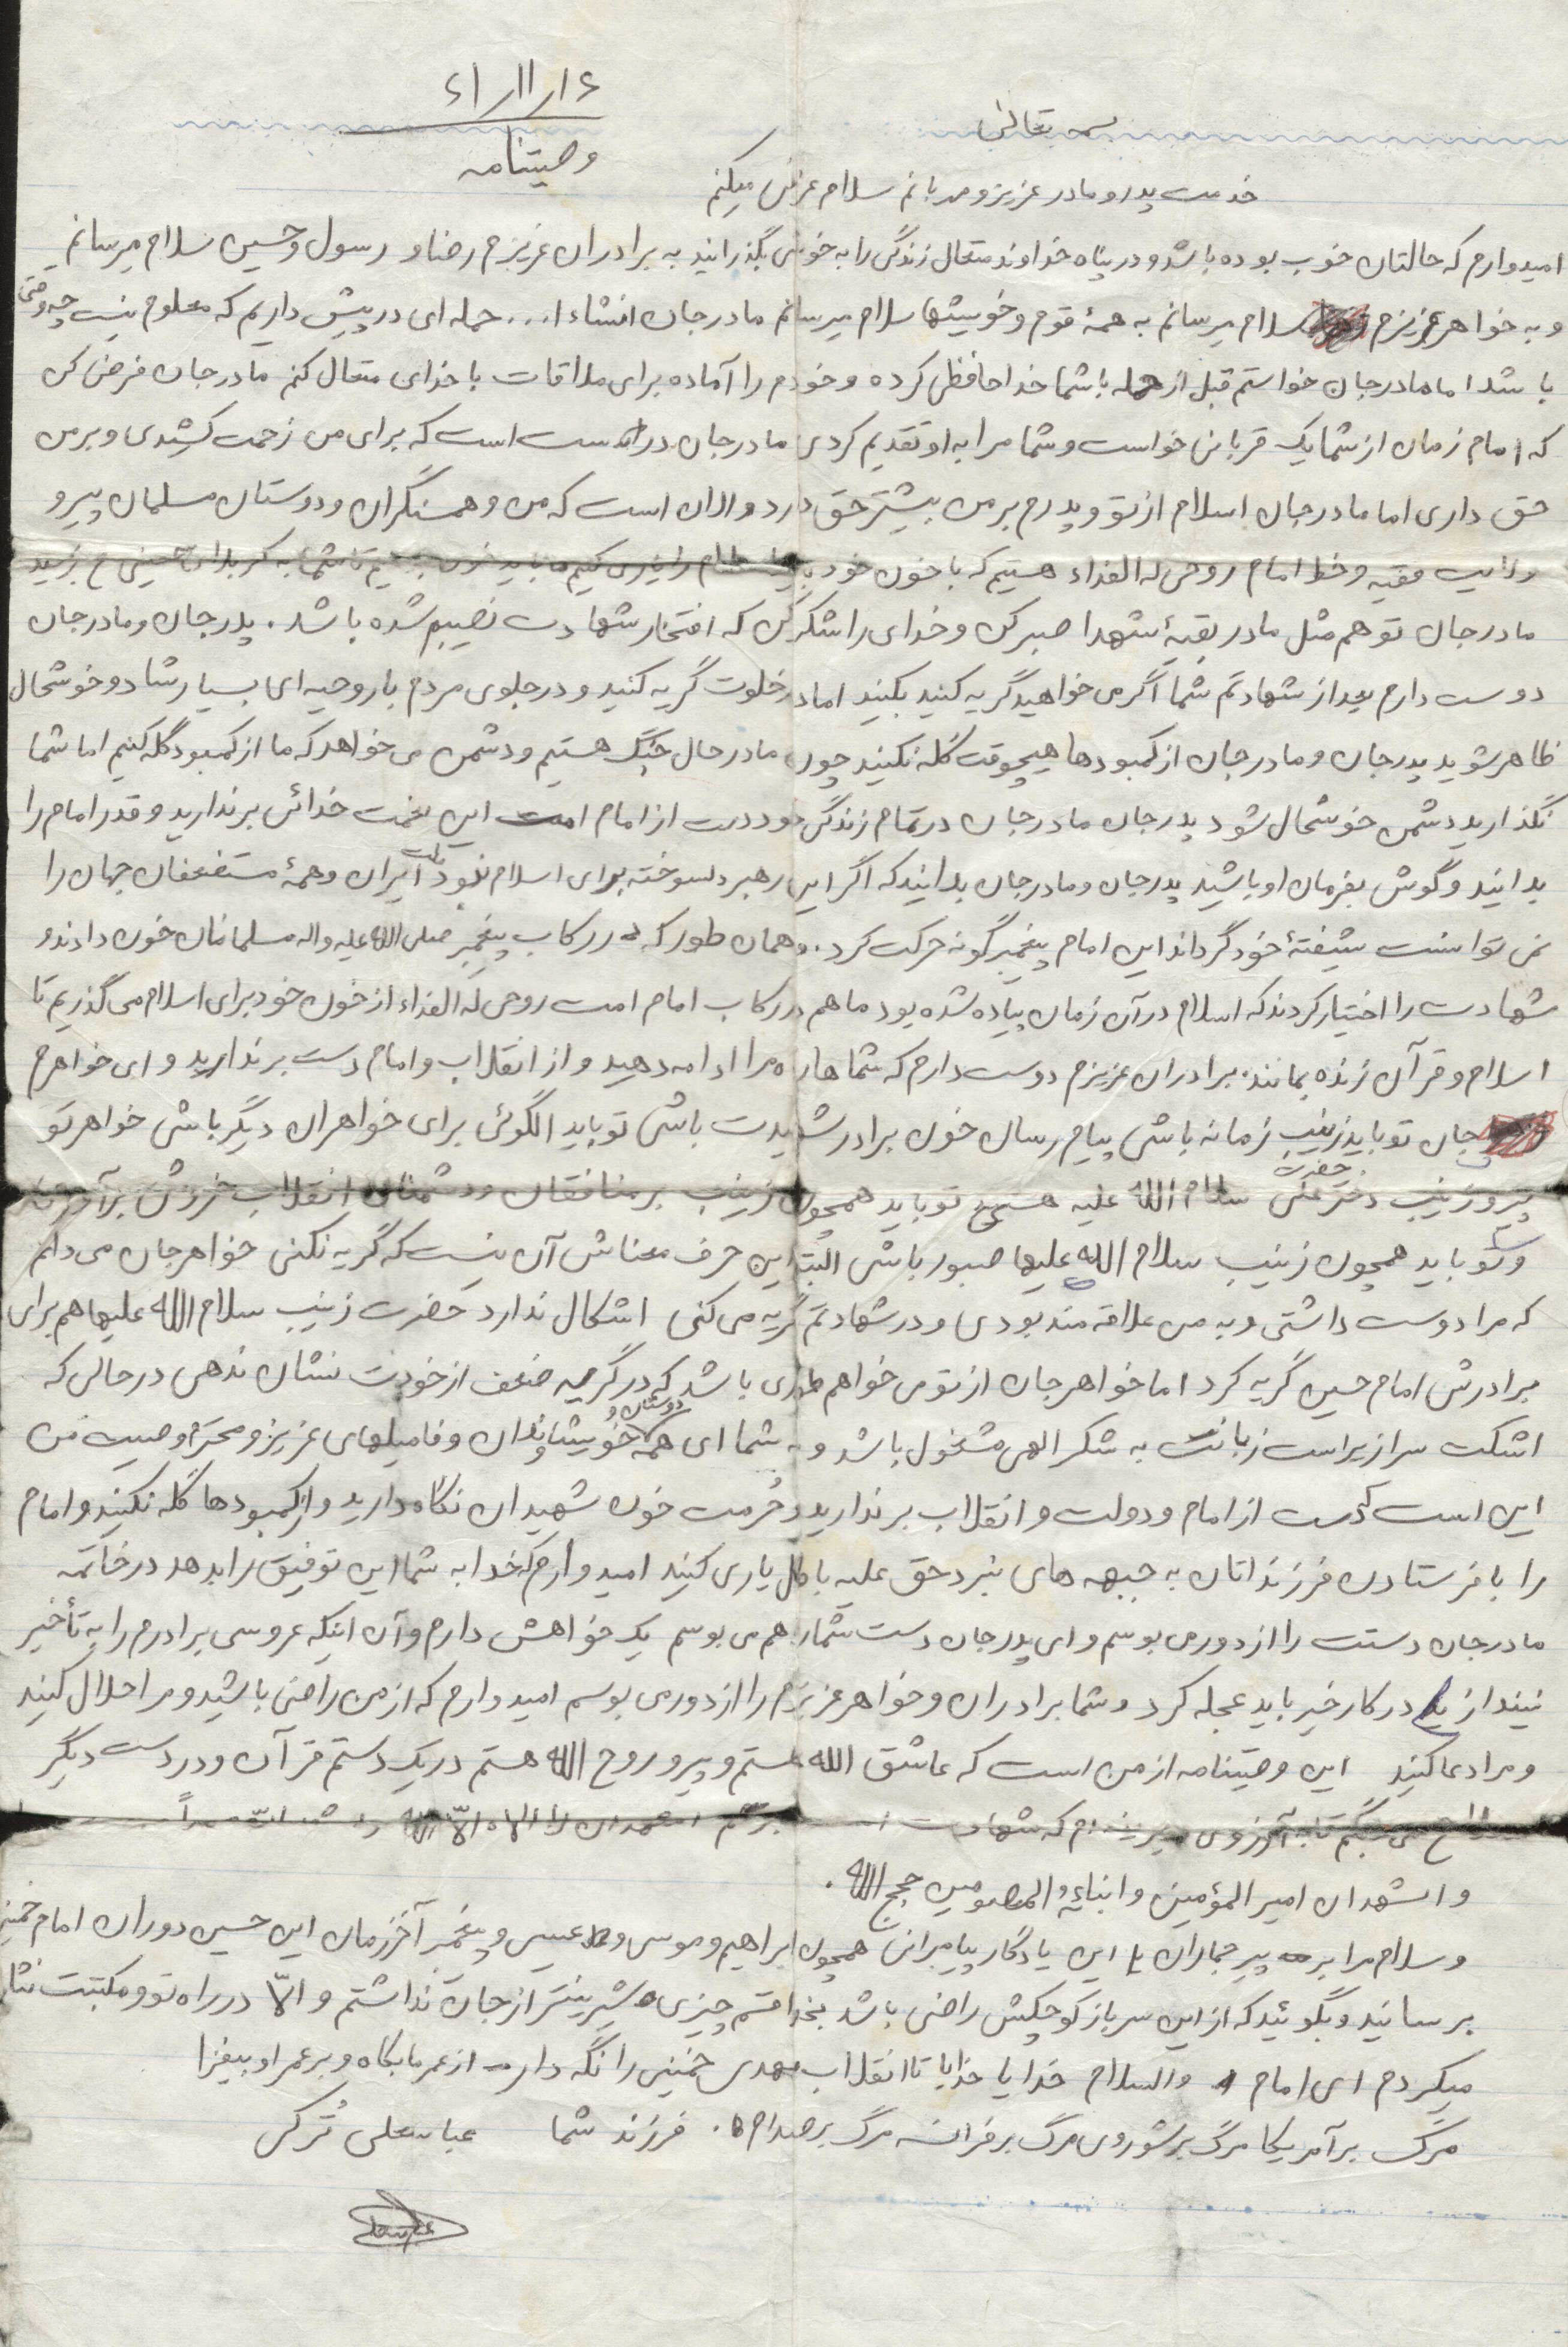 ۶۱/۱۱/۱۶
بسمه تعالی
وصیتنامه
خدمت پدر و مادر عزیز و مهربانم سلام عرض میکنم
امیدوارم که حالتان خوب بوده باشد و در پناه خداوند متعال زندگی را به خوشی بگذرانید به برادران عزیزم رضا و رسول و حسین سلام میرسانم
و به خواهر عزیزم سلام میرسانم به همهٔ قوم و خویشها سلام میرسانم مادر جان انشاء ا... حمله ای در پیش داریم که معلوم نیست چه وقتی
باشد اما مادر جان خواستم قبل از حمله با شما خداحافظی کرده و خودم را آماده برای ملاقات با خدای متعال کنم مادر جان فرض کن
که امام زمان از شما یک قربانی خواست و شما مرا به او تقدیم کردی مادر جان درست است که برای من زحمت کشیدی و بر من
حق داری اما مادر جان اسلام از تو و پدرم بر من بیشتر حق دارد و الان است که من و همسنگران و دوستان مسلمان پیرو
ولایت فقیه و خط امام روحی له الفداء هستیم که با خون خود باید اسلام را یاری کنیم ما باید خون بدهیم تا شما به کربلای حسینی ع برسید
مادر جان تو هم مثل مادر بقیهٔ شهدا صبر کن و خدای را شکر کن که افتخار شهادت نصیبم شده باشد. پدر جان و مادر جان
دوست دارم بعد از شهادتم شما اگر می خواهید گریه کنید بکنید اما در خلوت گریه کنید و در جلوی مردم با روحیه ای بسیار شاد و خوشحال
ظاهر شوید پدر جان و مادر جان از کمبودها هیچوقت گله نکنید چون ما در حال جنگ هستیم و دشمن می خواهد که ما از کمبود گله کنیم اما شما
نگذارید دشمن خوشحال شود پدر جان مادر جان در تمام زندگی خود دست از امام امت این نعمت خدائی برندارید و قدر امام را
بدانید و گوش بفرمان او باشید پدر جان و مادر جان بدانید که اگر این رهبر دلسوخته برای اسلام نبود ملت ایران و همهٔ مستضعفان جهان را
نمی توانست شیفتهٔ خود گرداند این امام پیغمبر گونه حرکت کرد. و همان طور که در رکاب پیغمبر صلی الله علیه و اله مسلمانان خون دادند و
شهادت را اختیار کردند که اسلام در آن زمان پیاده شده بود ما هم در رکاب امام امت روحی له الفداء از خون خود برای اسلام می گذریم تا
اسلام و قرآن زنده بمانند. برادران عزیزم دوست دارم که شماها راه مرا ادامه دهید و از انقلاب و امام دست برندارید و ای خواهرم
جان تو باید زینب زمانه باشی پیام رسان خون برادر شهیدت باشی تو باید الگوئی برای خواهران دیگر باشی خواهر تو
پیرو زینب دختر حضرت علی سلام الله علیه هستی تو باید همچون زینب بر منافقان و دشمنان انقلاب خروش برآوری
و تو باید همچون زینب سلام الله علیها صبور باشی البته این حرف معناش آن نیست که گریه نکنی خواهر جان می دانم
که مرا دوست داشتی و به من علاقه مند بودی و در شهادتم گریه می کنی اشکال ندارد حضرت زینب سلام الله علیها هم برای
برادرش امام حسین گریه کرد اما خواهر جان از تو می خواهم طوری باشد که در گریه ضعف از خودت نشان ندهی در حالی که
اشکت سرازیر است زبانت به شکر الهی مشغول باشد و به شما ای همه دوستان و خویشاوندان و فامیلهای عزیز و محترم وصیت من
این است که دست از امام و دولت و انقلاب برندارید و حُرمت خون شهیدان نگاه دارید و از کمبودها گله نکنید و امام
را با فرستادن فرزندانتان به جبهه های نبرد حق علیه باطل یاری کنید امیدوارم که خدا به شما این توفیق را بدهد در خاتمه
مادر جان دستت را از دور می بوسم و ای پدر جان دست شما را هم می بوسم یک خواهش دارم و آن اینکه عروسی برادرم را به تأخیر
نیندازید در کار خیر باید عجله کرد و شما برادران و خواهر عزیزم را از دور می بوسم امیدوارم که از من راضی باشید و مرا حلال کنید
و مرا دعا کنید این وصیتنامه از من است که عاشق الله هستم و پیرو روح الله هستم در یک دستم قرآن و در دست دیگر
سلاح می جنگم تا به آرزوی دیرینه ام که شهادت است برسم اشهد ان لا اله الا الله
و اشهد ان امیر المؤمنین و ابنائِهِ المعصومین حجج الله.
و سلام مرا بر پیر جماران این یادگار پیامبرانی همچون ابراهیم و موسی و عیسی و پیغمبر آخر زمان این حسین دوران امام خمینی
برسانید و بگوئید که از این سرباز کوچکش راضی باشد بخدا قسم چیزی شیرینتر از جان نداشتم و الاّ در راه تو و مکتبت نثار
میکردم ای امام والسلام خدایا خدایا تا انقلاب مهدی خمینی را نگه دار از عمر ما بکاه و بر عمر او بیفزا
مرگ بر آمریکا مرگ بر شوروی مرگ بر فرانسه مرگ بر صدام. فرزند شما عباسعلی تُرکی